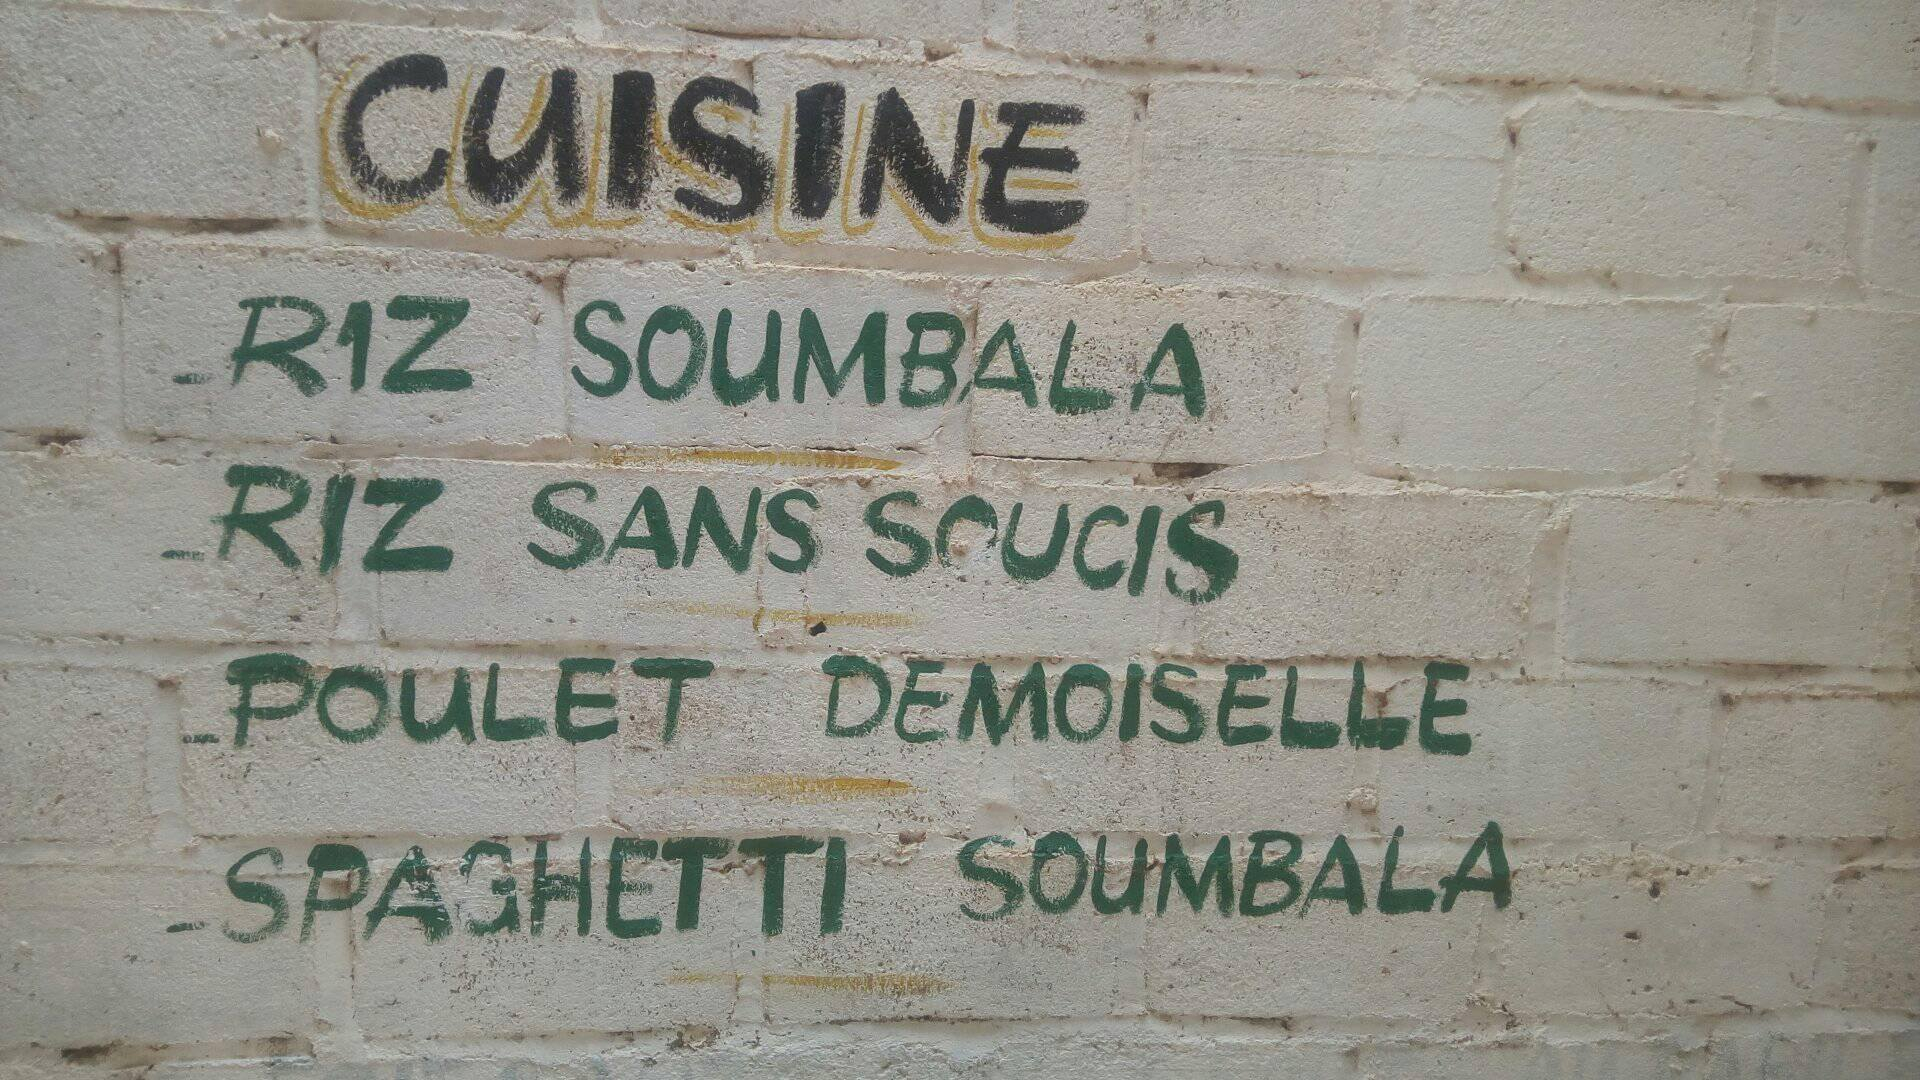 CUISINE
- RIZ SOUMBALA
- RIZ SANS SOUCIS
- POULET DEMOISELLE
- SPAGHETTI SOUMBALA